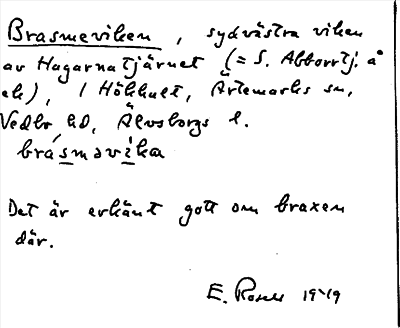 Brasmeviken, sydvästra viken
av Hagarnatjärnet (= S. Abborrtj. å
ek), 1 Hökhult, Ärtemarks sn,
Vedbo hd, Älvsborgs l.
bråsmavika
Det är erkänt gott om braxen
där.
E. 19